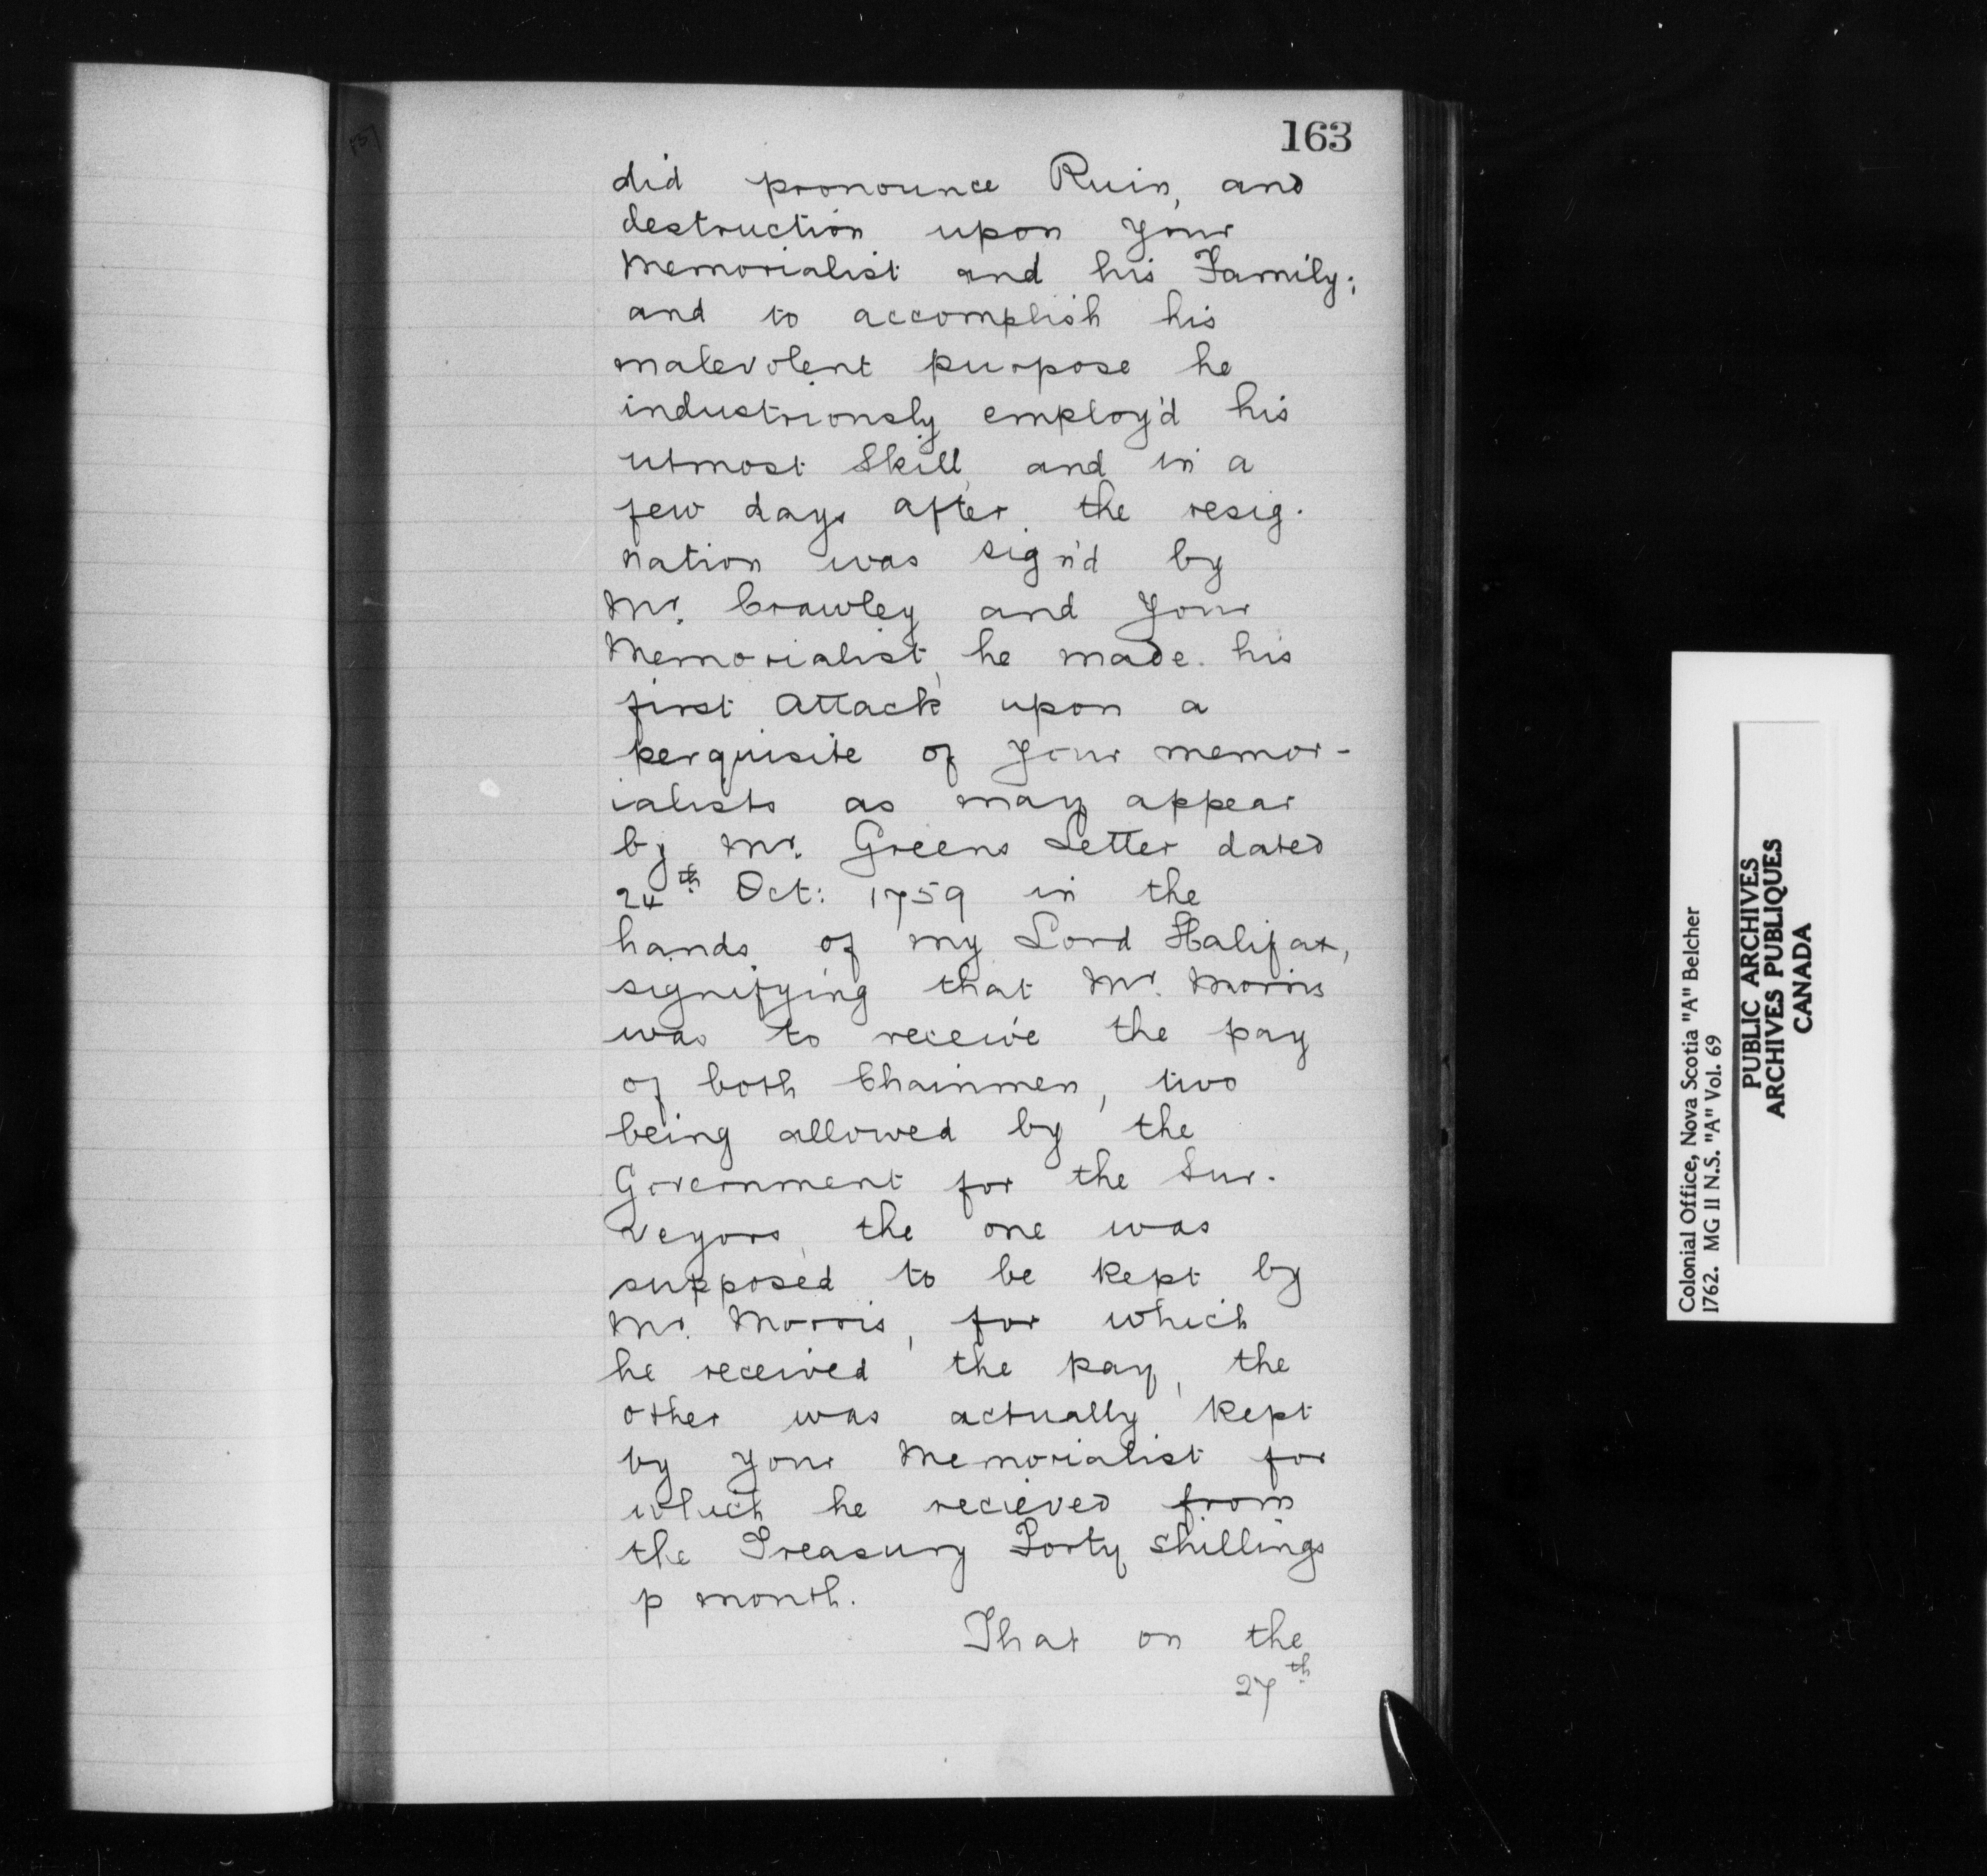 163
did pronounce Ruin, and
destruction upon your
Memorialist and his Family;
and to accomplish his
malevolent purpose he
industriously employ'd his
utmost Skill, and in a
few days after the resig-
nation was sign'd by
Mr. Crawley and Your
Memorialist, he made his
first Attack upon a
perquisite of your memor-
ialists as may appear
by Mr. Greens Letter dated
24th Oct: 1759 in the
hands of my Lord Halifax,
signifying that Mr. Morris
was to receive the pay
of both Chainmen, two
being allowed by the
Government for the Sur-
veyors, the one was
supposed to be kept by
Mr. Morris, for which
he received the pay, the
other was actually kept
by your Memorialist for
which he recieved from
the Treasury Forty shillings
p month.
That on the
27th
Colonial Office, Nova Scotia "A" Belcher
1762. MG II N.S. "A" Vol. 69
PUBLIC ARCHIVES
ARCHIVES PUBLIQUES
CANADA